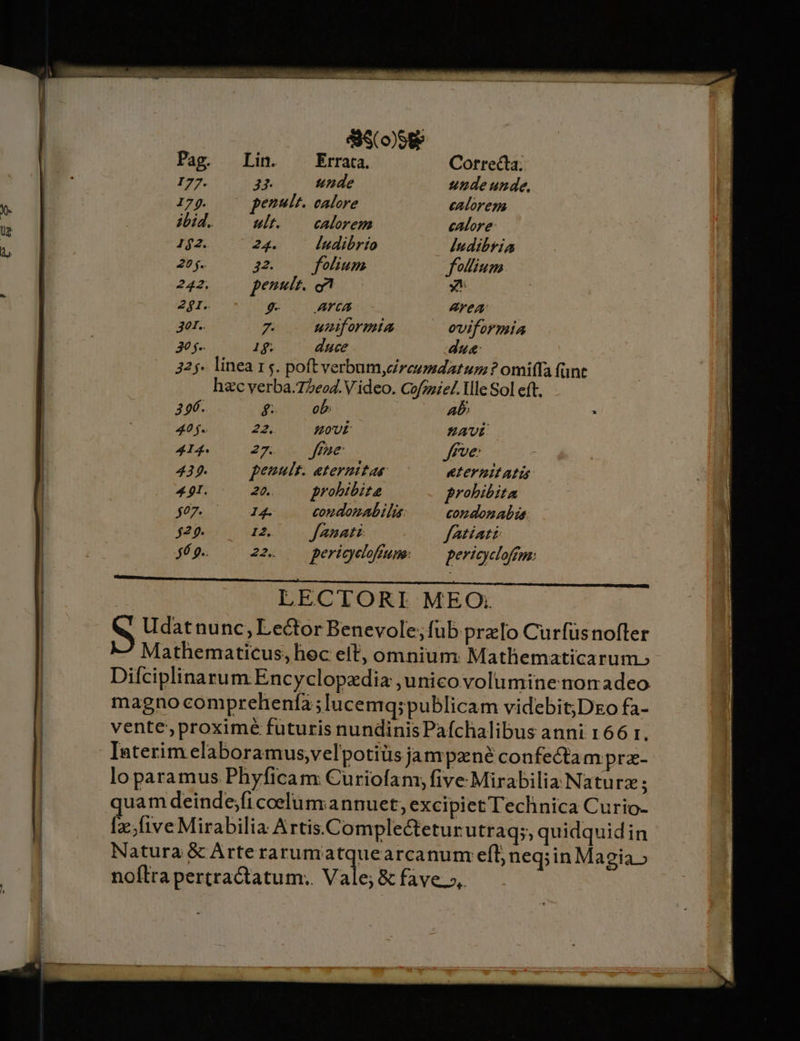 (o)
Pag. Lin. Errata. Correcta.
177. 33. unde unde unde.
179. penult. calore calorem
ibid. ult. calorem calore
182. 24. ludibrio ludibria
205. 32. folium follium
242. penult.
281. 9. arca area
301. 7. uniformia oviformia
305. 18. duce duæ
325. linea 15. post verbum, circumdatum? omissa sunt
hæc verba. Theod. Video. Cosmiel. Ille Sol est.
396. 8. ob ab
405. 22. novi navi
414. 27. sine sive
439. penult. æternitas æternitatis
491. 20. prohibitæ prohibita
507. 14. condonabilis condonabis
529. 12. sanati satiati
569. 22. pericyclosium pericyclosim
LECTORI MEO.
SUdat nunc, Lector Benevole, sub prælo Cursus noster
Mathematicus, hoc est, omnium Mathematicarum
Disciplinarum Encyclopædia, unico volumine non adeo
magno comprehensa; lucemq; publicam videbit, Deo fa-
vente, proximè futuris nundinis Paschalibus anni 1661.
Interim elaboramus, vel potiùs jam pæné confectam præ-
lo paramus Physicam Curiosam, sive Mirabilia Naturæ;
quam deinde, si cœlum annuet, excipiet Technica Curio-
sæ, sive Mirabilia Artis. Complectetur utraq;, quidquid in
Natura & Arte rarum atque arcanum est, neq; in Magia
nostra pertractatum. Vale, & fave.